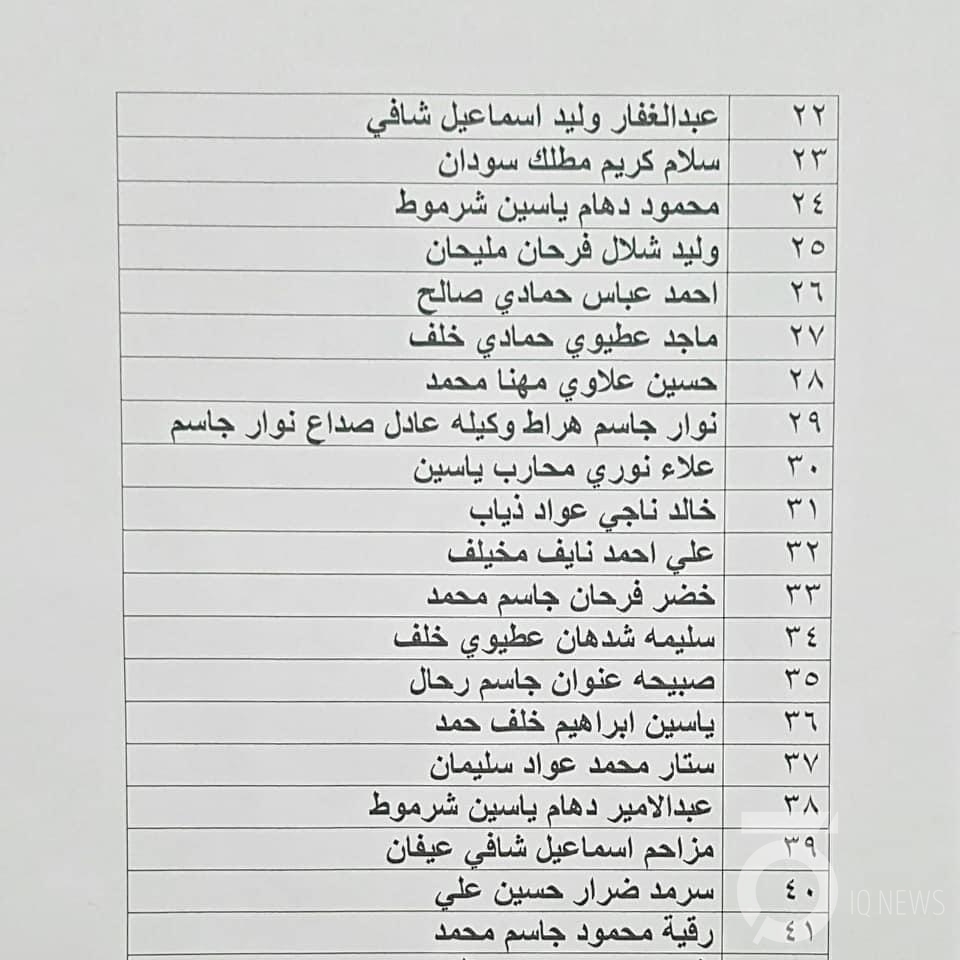 ٢٢ عبدالغفار وليد اسماعيل شافي
٢٣ سلام كريم مطلك سودان
٢٤ محمود دهام ياسين شرموط
٢٥ وليد شلال فرحان مليحان
٢٦ احمد عباس حمادي صالح
٢٧ ماجد عطيوي حمادي خلف
٢٨ حسين علاوي مهنا محمد
٢٩ نوار جاسم هراط وكيله عادل صداع نوار جاسم
٣٠ علاء نوري محارب ياسين
٣١ خالد ناجي عواد ذياب
٣٢ علي احمد نايف مخيلف
٣٣ خضر فرحان جاسم محمد
٣٤ سليمه شدهان عطيوي خلف
٣٥ صبيحه عنوان جاسم رحال
٣٦ ياسين ابراهيم خلف حمد
٣٧ ستار محمد عواد سليمان
٣٨ عبدالامير دهام ياسين شرموط
٣٩ مزاحم اسماعيل شافي عيفان
٤٠ سرمد ضرار حسين علي
٤١ رقية محمود جاسم محمد
IQ NEWS